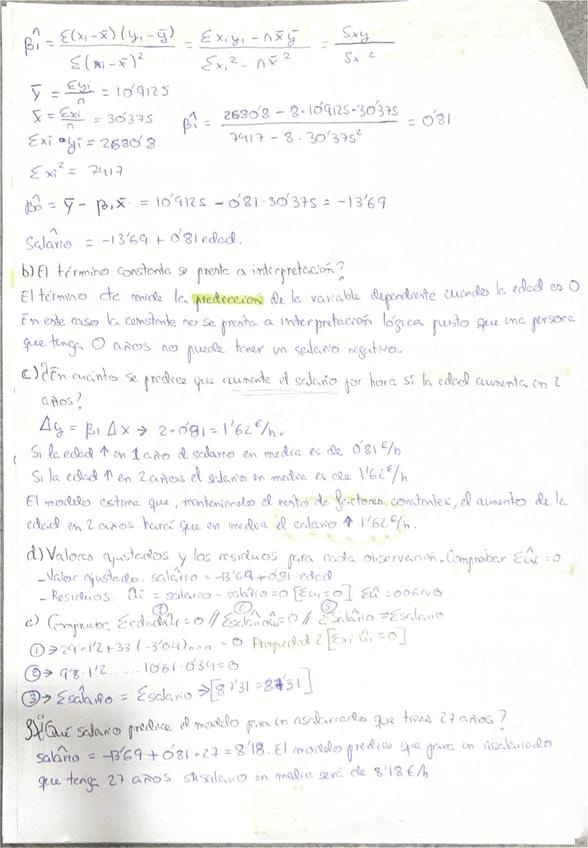 β̂₁ = Σ(xi - x̄)(yi - ȳ) / Σ(xi - x̄)² = Σxiyi - nx̄ȳ / Σxi² - nx̄² = Sxy / Sx²
ȳ = Σyi / n = 10'9125
x̄ = Σxi / n = 30'375
β̂₁ = 2680'8 - 8·10'9125·30'375 / 7417 - 8·30'375² = 0'81
Σxi·yi = 2680'8
Σxi² = 7417
β̂₀ = ȳ - β₁x̄ = 10'9125 - 0'81·30'375 = -13'69
Salârio = -13'69 + 0'81 edad.
b) El término constante se presta a interpretación?
El término cte mide la predicción de la variable dependiente cuando la edad es 0
En este caso la constante no se presta a interpretación lógica puesto que una persona
que tenga 0 años no puede tener un salario negativo.
c) ¿En cuánto se predice que aumente el salario por hora si la edad aumenta en 2
años?
Δy = β₁ Δx → 2·0'81 = 1'62€/h.
Si la edad ↑ en 1 año el salario en media es de 0'81€/h
Si la edad ↑ en 2 años el salario en media es de 1'62€/h
El modelo estima que, manteniendo el resto de factores constantes, el aumento de la
edad en 2 años hará que en media el salario ↑ 1'62€/h.
d) Valores ajustados y los residuos para cada observación. Comprobar Σûi = 0
- Valor ajustado. salârio = -13'69 + 0'81·edad
- Residuos. ûi = salario - salârio = 0 [Σui = 0] Σû =
e) Comprobar Σedad ûi = 0 // Σsalârio ûi = 0 // Σsalârio = Σsalario
① → 29·1'2 + 33(-3'04) ... = 0 Propiedad 2 [Σxi ûi = 0]
② → 9'8·1'2 ..... 10'61·0'34 = 0
③ → Σsalârio = Σsalario → [87'31 = 87'31]
¿Qué salario predice el modelo para un asalariado que tiene 27 años?
salârio = -13'69 + 0'81·27 = 8'18. El modelo predice que para un asalariado
que tenga 27 años su salario en media será de 8'18€/h